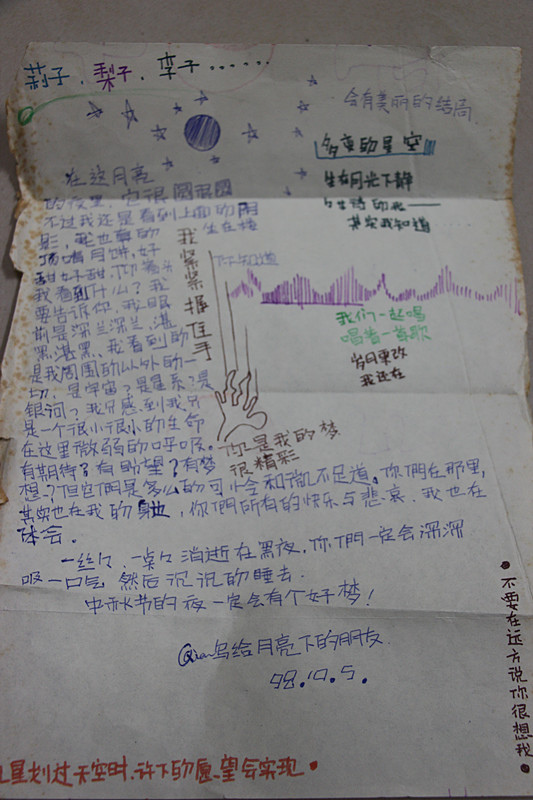 莉子、梨子、李子……
会有美丽的结局
多变的星空
生在月光下静
其实我知道
在这月亮
的夜里，它很圆很圆
不过我还是看到上面的阴
影，
顶啃月饼，好
甜好甜，仰着头
我看到什么？我
要告诉你，我眼
前是深兰深兰，湛
黑湛黑，我看到的
是我周围的以外的一
切，是宇宙？是星系？是
银河？我只感到我只
是一个很小很小的生命
在这里微弱的呼吸。
有期待？有盼望？有梦
想？但它們是多么的可小会和微不足道。你們在那里，
其实也在我的身边，你們所有的快乐与悲哀，我也在
体会。
一丝々、一点々消逝在黑夜，你們一定会深深
吸一口气，然后沉沉的睡去。
中秋节的夜一定会有个好梦！
写给月亮下的朋友
98.10.5.
我紧紧握住手
你知道
我们一起唱
唱着一首歌
岁月更改
我还在
你是我的梦
很精彩
不要在远方说你很想我
星划过天空时，许下的愿望会实现